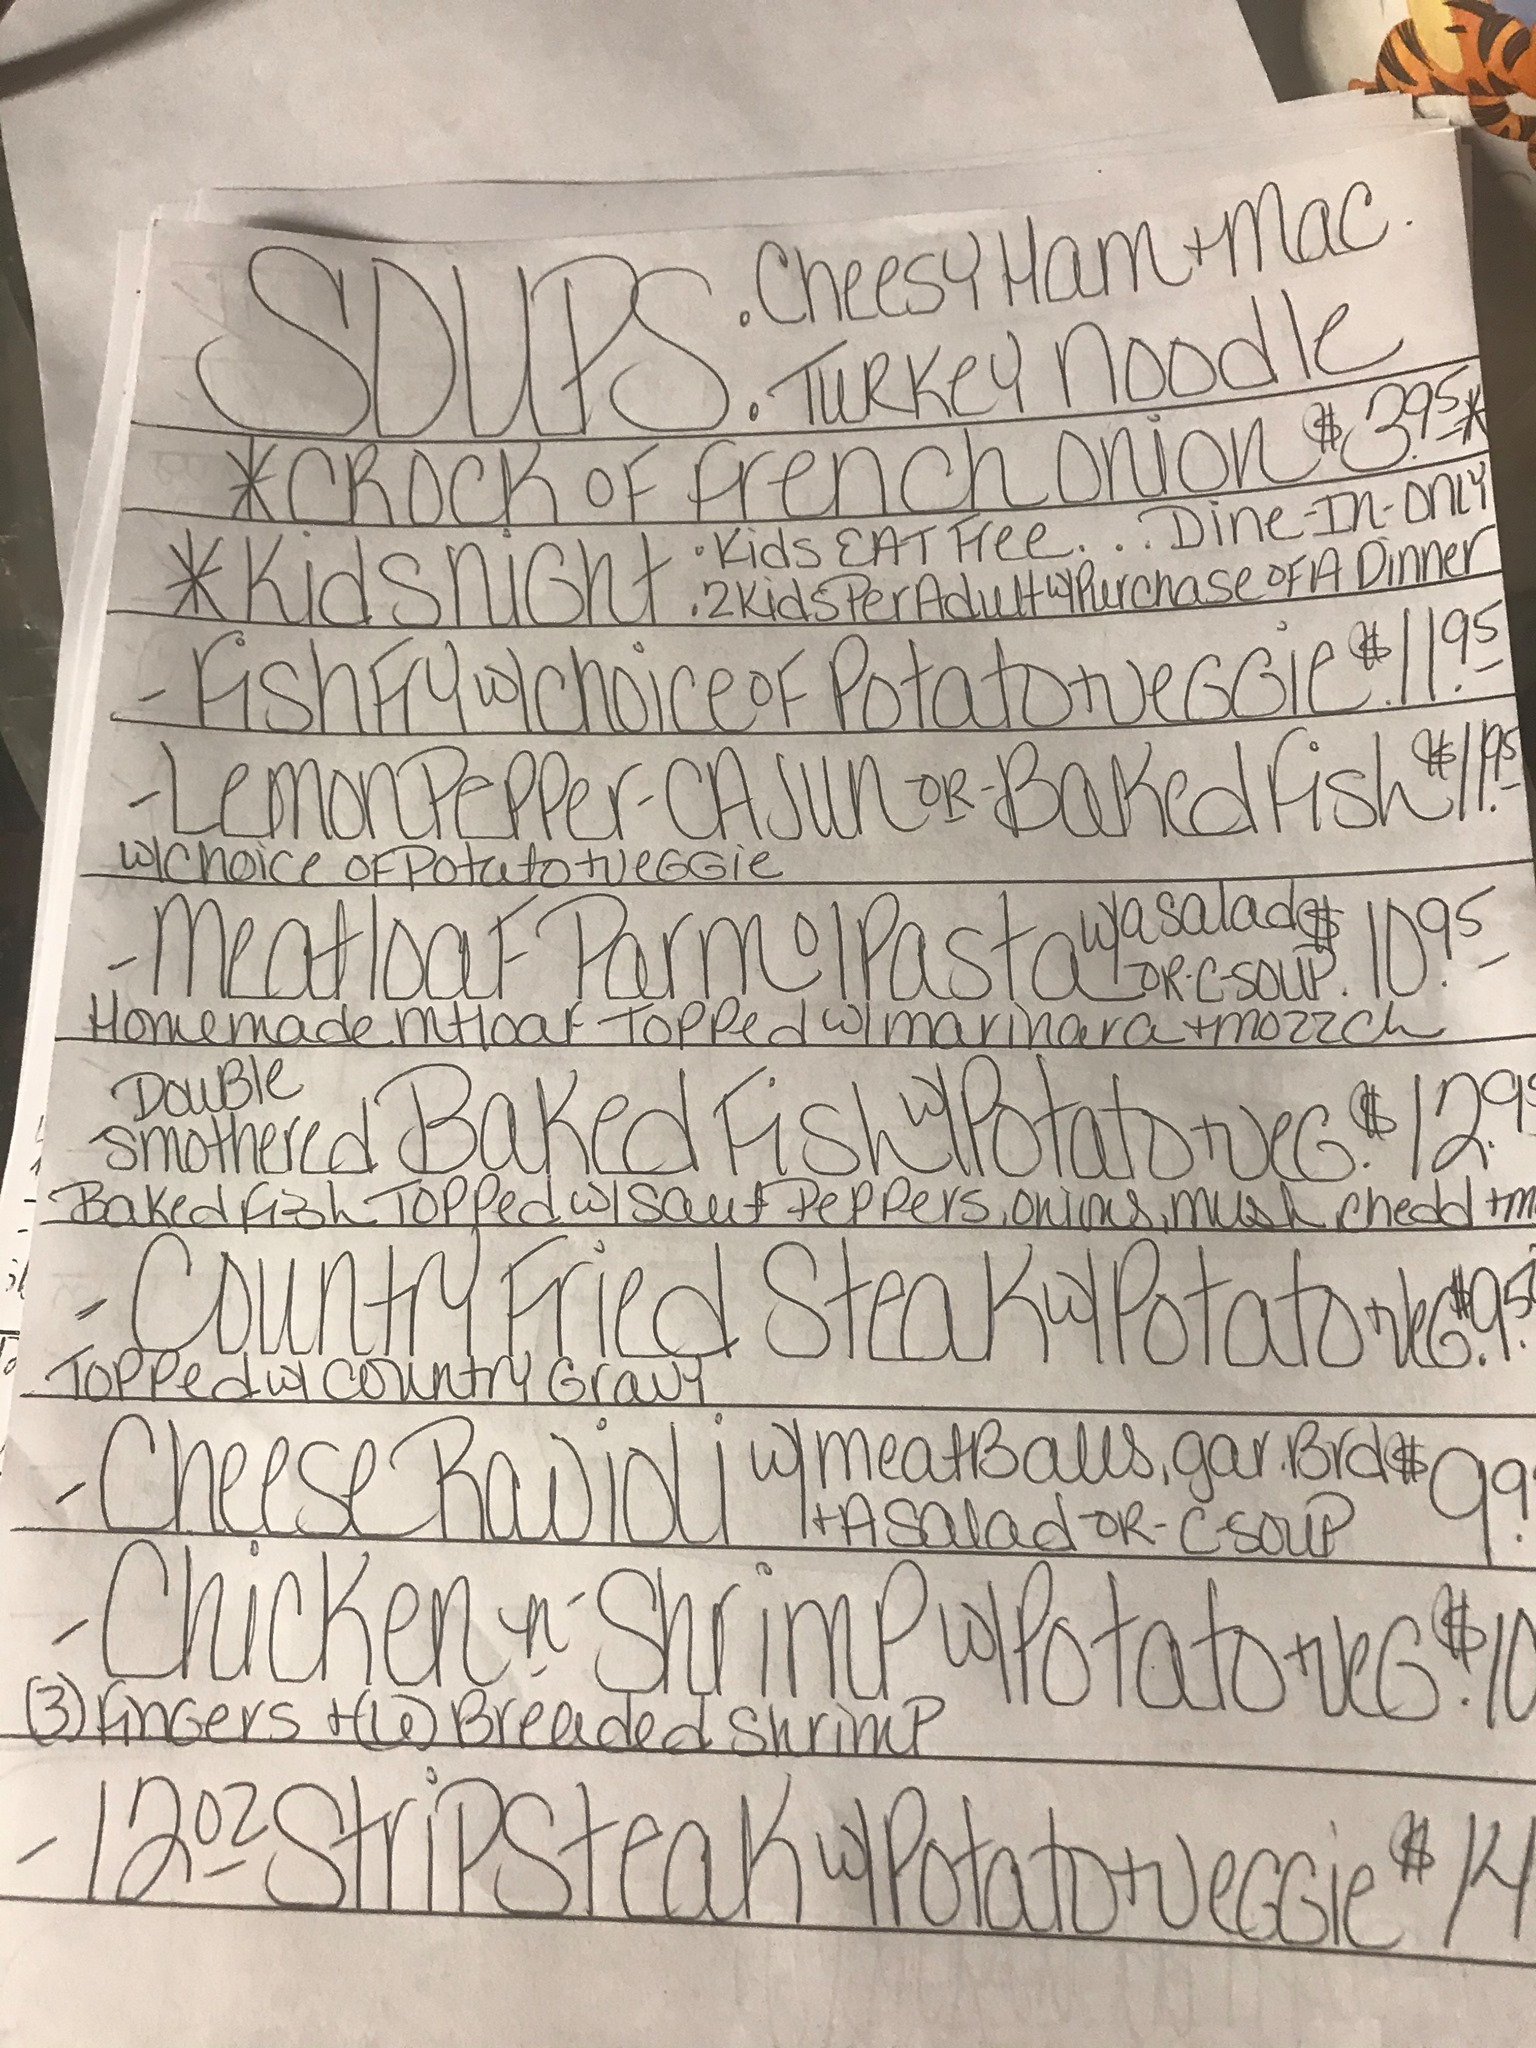 SOUPS . Cheesy Ham + Mac .
. Turkey Noodle
*Crock of French Onion $3.95*
*Kids Night . Kids Eat Free... Dine-In-Only
. 2 Kids Per Adult w/ Purchase of A Dinner
- Fish Fry w/ choice of Potato + Veggie $11.95
- Lemon Pepper - Cajun -or- Baked Fish $11.95
w/ choice of Potato + Veggie
- Meatloaf Parm o/ Pasta w/ a salad -or- C-soup $10.95
Homemade mtloaf Topped w/ marinara + mozz ch
Double
smothered Baked Fish w/ Potato + Veg. $12.95
Baked Fish Topped w/ saut Peppers, onions, mush, chedd + m
- Country Fried Steak w/ Potato + Veg. $9.50
Topped w/ Country Gravy
- Cheese Ravioli w/ meatballs, gar. Brd $9.9
+ A Salad -or- C-soup
- Chicken -n- Shrimp w/ Potato + Veg. $10
(3) Fingers + (6) Breaded Shrimp
- 12oz Strip Steak w/ Potato + Veggie $14